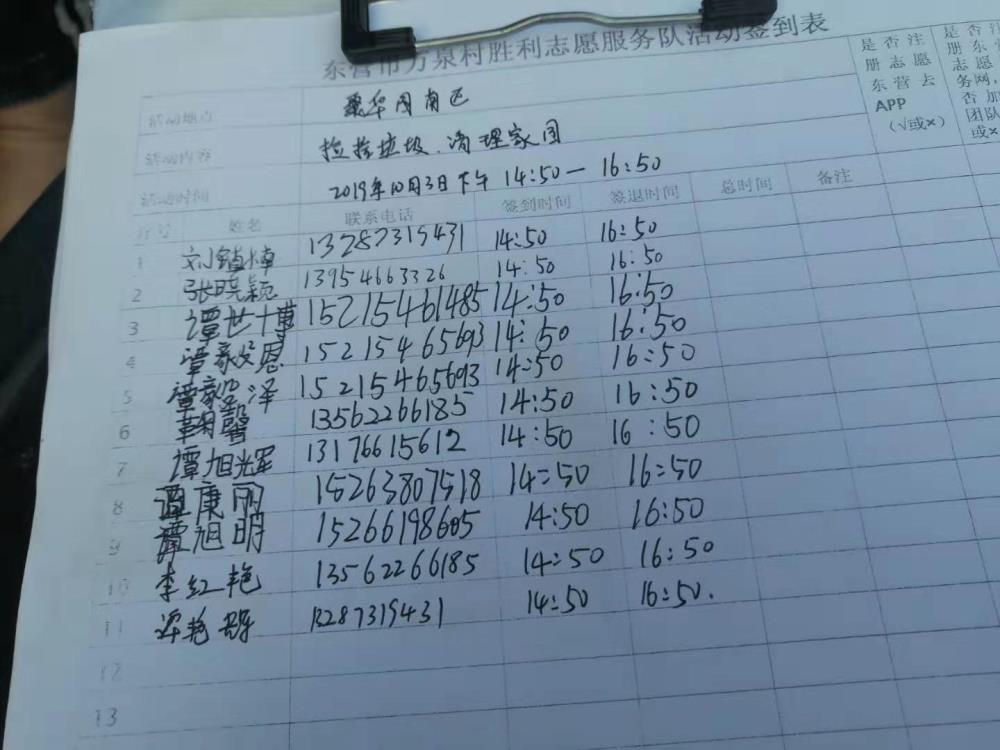 东营市万泉村胜利志愿服务队活动签到表
是否注册志愿东营去APP（√或×）
是否注册东志愿务网，否加团队或×
活动地点 南区
活动内容 捡拾垃圾.清理家园
活动时间 2019年10月3日下午 14:50— 16:50
序号 姓名 联系电话 签到时间 签退时间 总时间 备注
1 刘镇 13287319431 14:50 16:50
2 张晓颖 13954663326 14:50 16:50
3 谭世博 15215461485 14:50 16:50
4 15215465693 14:50 16:50
5 泽 15215465693 14:50 16:50
6 韩馨 13562266185 14:50 16:50
7 谭旭辉 13176615612 14:50 16:50
8 谭康丽 15263807518 14:50 16:50
9 谭旭明 15266198605 14:50 16:50
10 李红艳 13562266185 14:50 16:50
11 艳 13287319431 14:50 16:50.
12
13